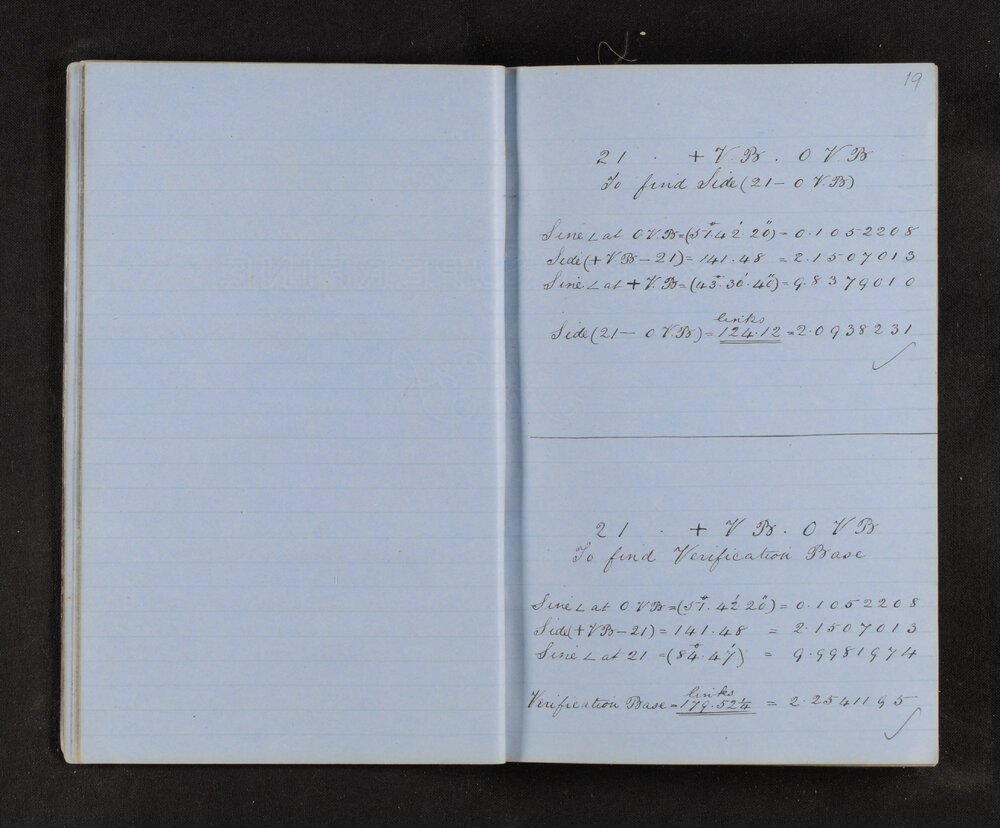 19
21 . + V.B. 0 V B
To find Side (21 – 0 V.B)
Sine ∠ at 0 V.B = (51°.42'.20") = 0.1052208
Side (+ V B – 21) = 141.48 = 2.1507013
Sine ∠ at + V.B = (43°.30'.40") = 9.8379010
links
Side (21 – 0 V.B) = 124.12 = 2.0938231
21 . + V B. 0 V B
To find Verification Base
Sine ∠ at 0 V B = (51°. 42' 20") = 0.1052208
Side (+ V B – 21) = 141.48 = 2.1507013
Sine ∠ at 21 = (84°.47') = 9.9981974
links
Verification Base = 179.52¼ = 2.2541195